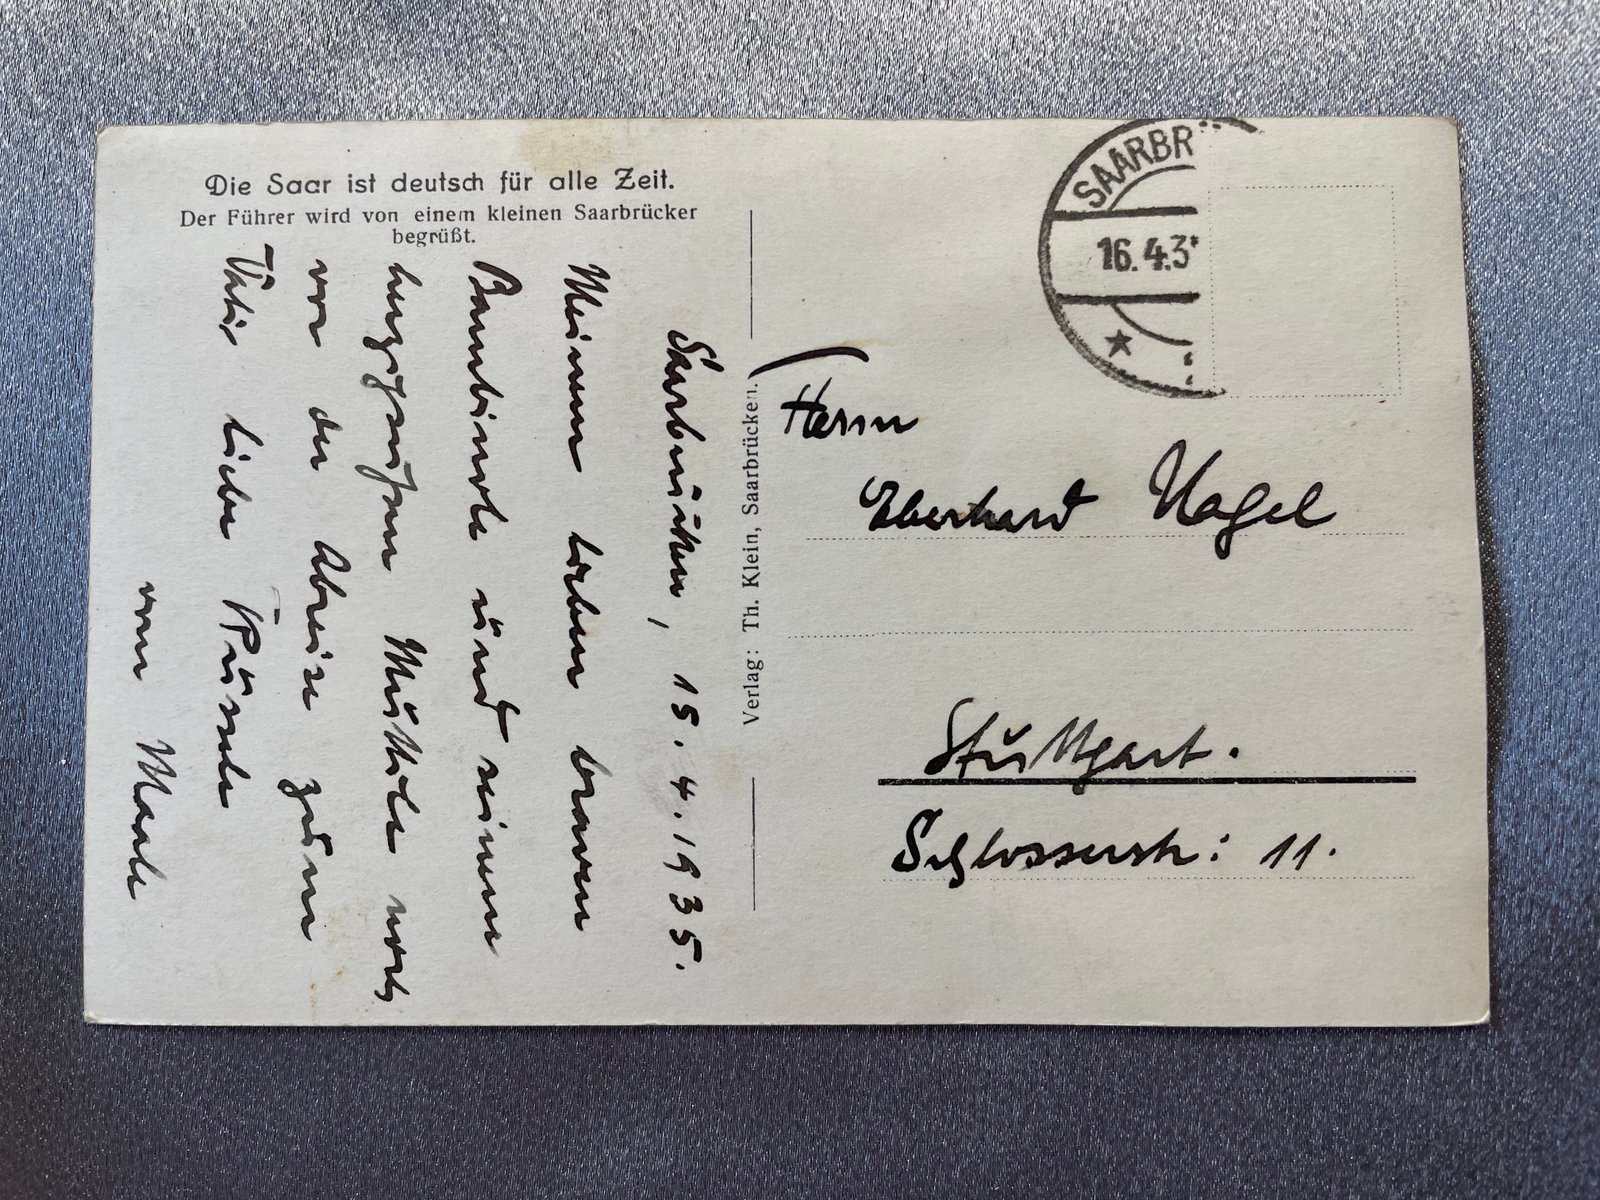 Die Saar ist deutsch für alle Zeit.
Der Führer wird von einem kleinen Saarbrücker
begrüßt.
Saarbrücken, 15.4.1935.
Meinem lieben braven
und seinem
herzigen noch
vor der Abreise zum
liebe Grüssle
vom
Verlag: Th. Klein, Saarbrücken.
SAARBR
16.4.3
Herrn
Eberhard Nagel
Stuttgart.
Schlosserstr: 11.